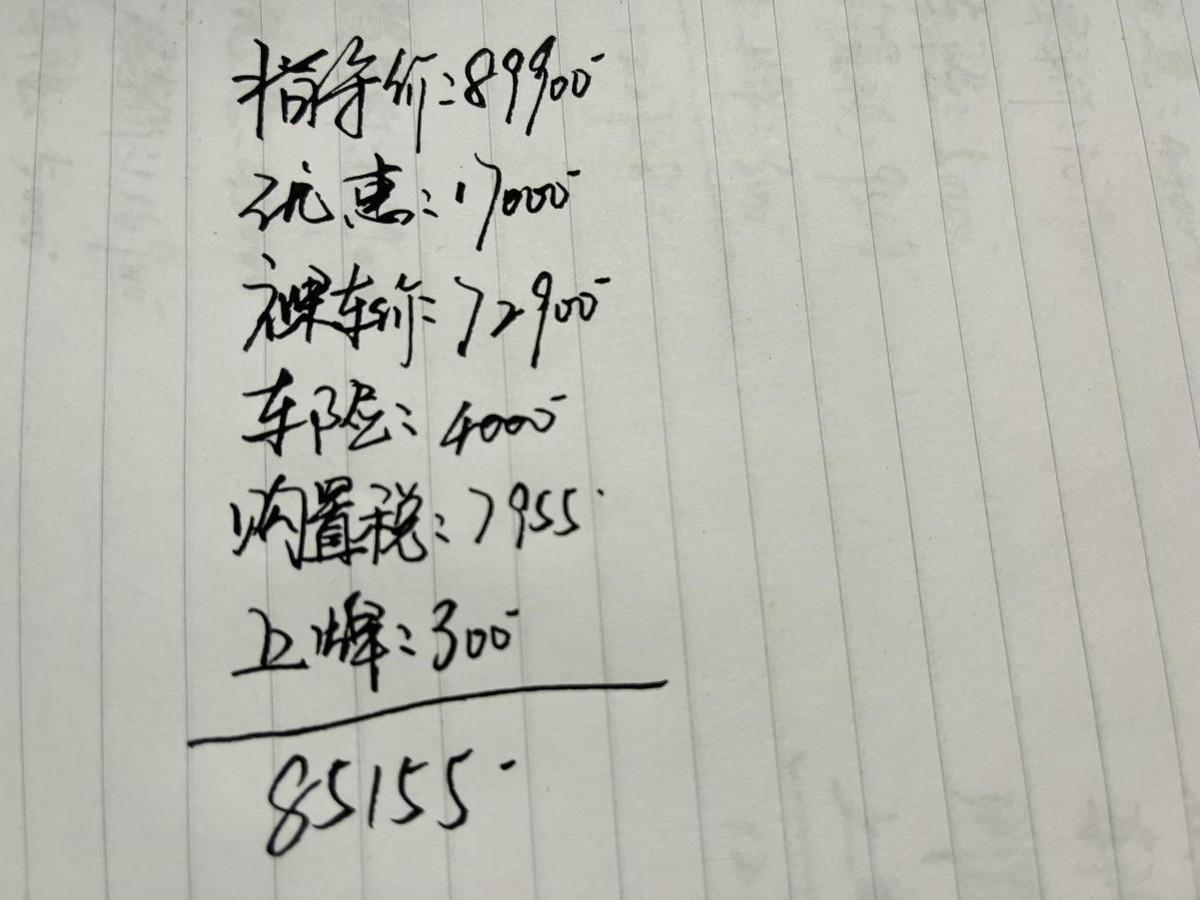 指导价:89900-
优惠:17000-
裸车价:72900-
车险:4000-
购置税:7955.
上牌:300-
85155-